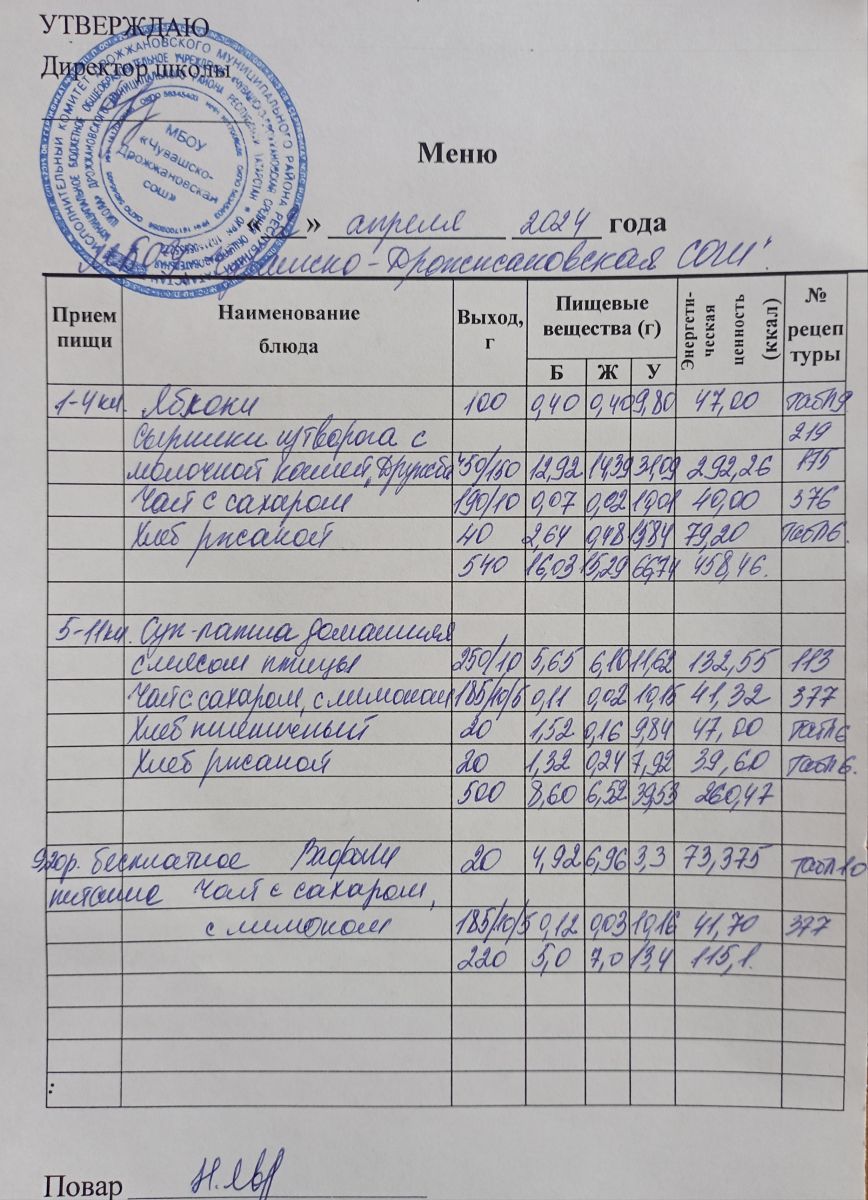 УТВЕРЖДАЮ
Директор школы
МБОУ
«Чувашско-
Дрожжановская
сош»
Меню
« » апреля 2024 года
МБОУ "Чувашско-Дрожжановская СОШ".
Прием пищи Наименование блюда Выход, г Пищевые вещества (г) Энергетическая ценность (ккал) № рецептуры
Б Ж У
1-4 кл. Яблоки 100 0,40 0,40 9,80 47,00 табл 9
Сырники из творога с 219
молочной кашей "Дружба" 50/150 12,92 14,39 31,09 292,26 175
Чай с сахаром 190/10 0,07 0,02 10,01 40,00 376
Хлеб ржаной 40 2,64 0,48 15,84 79,20 табл 6.
540 16,03 15,29 66,74 458,46.
5-11 кл. Суп-лапша домашняя
с мясом птицы 250/10 5,65 6,10 11,62 132,55 113
Чай с сахаром, с лимоном 185/10/5 0,11 0,02 10,15 41,32 377
Хлеб пшеничный 20 1,52 0,16 9,84 47,00 табл 6
Хлеб ржаной 20 1,32 0,24 7,92 39,60 табл 6.
500 8,60 6,52 39,53 260,47
9,20р. бесплатное Вафли 20 4,92 6,96 3,3 73,375 табл 10
питание Чай с сахаром,
с лимоном 185/10/5 0,12 0,03 10,16 41,70 377
220 5,0 7,0 13,4 115,1.
:
Повар